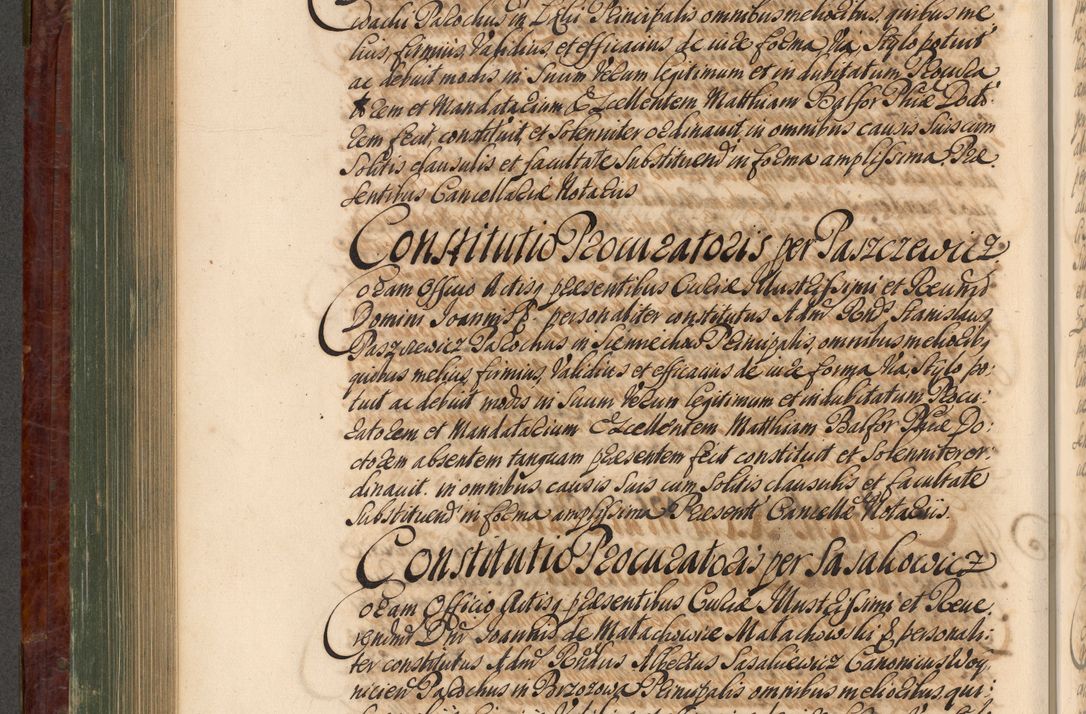 Parochus in Principalis omnibus melioribus, quibus me
lius, firmius, validius, et efficacius de iure forma Via, Stylo potuit
ac debuit modis in Suum Verum legitimum et in dubitatum Procura
torem et Mandatarium Excellentem Matthiam Balfor Phiae Docto:
rem fecit, constituit, et Solenniter ordinavit, in omnibus causis Suis cum
Solitis clausulis et facultate Substituend in forma amplissima. Prae
sentibus Cancellariae Notariis
Constitutio Procuratoris per Paszczewicz
Coram Officio Actisq praesentibus Curiae Illustrissimi et Reurnd
Domini Joannis & personaliter constitutus Admd Rnds Stanislaus
Paszczewicz Parochus in Siemiechow Principalis, omnibus meliorib9
quibus melius, firmius, Validius et efficacius de iure forma Via, Stylo po:
tuit ac debuit modis in Suum Verum legitimum et indubitatum Procu:
ratorem et Mandatarium Excellentem Matthiam Balfor Phiae Do:
ctorem absentem tanquam praesentem fecit constituit et Solenniter or:
dinauit. in omnibus causis Suis cum Solitis clausulis et facultate
Substituend in forma amplissima Praesentt Cancellae Notariis.
Constitutio Procuratoris per Sasakowicz
Coram Officio Actisq praesentibus Curiae Illustrissimi et Reue.
rendmi Dni Joannis de Małachowice Małachowski & personali:
ter constitutus Admd Rndus Albertus Sasaluewicz Canonicus Woy:
nicien Parochus in Brzozowa Principalis omnibus melioribus, qui: